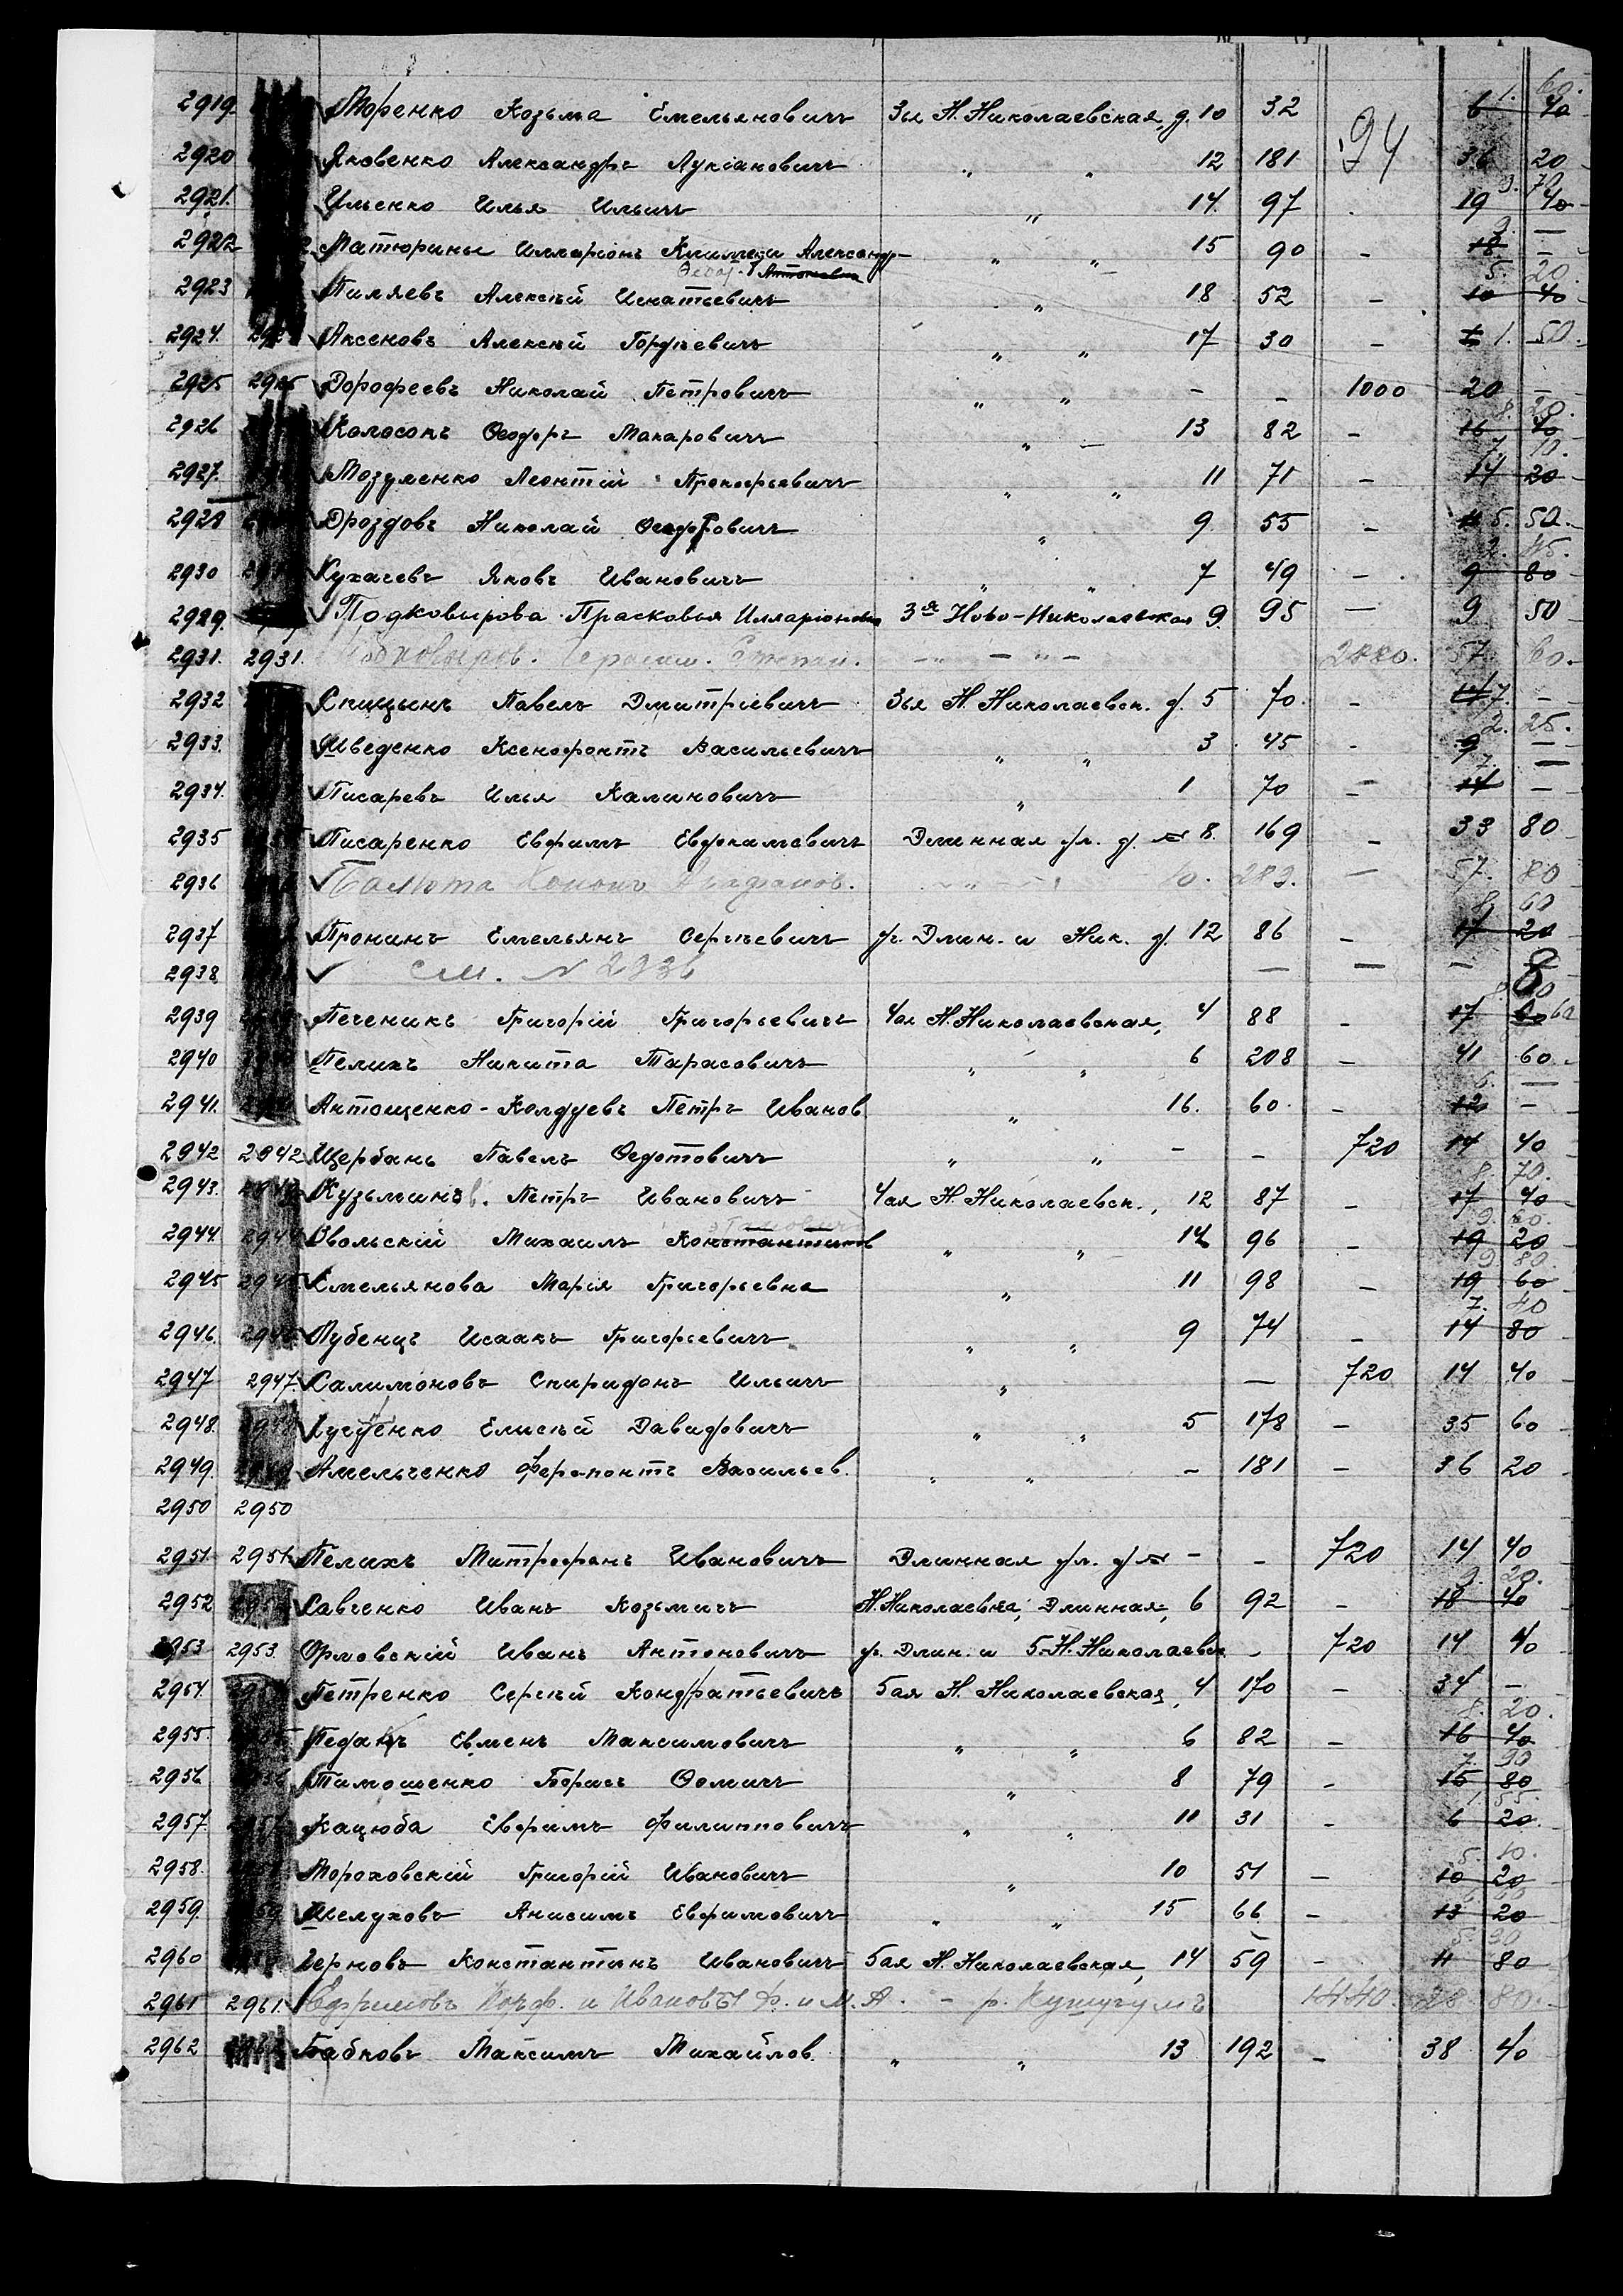 1. 60.
2919. Моренко Козьма Емельяновичъ 3ья Н. Николаевская, д. 10 32 94 6 40
2920 Яковенко Александръ Лукіановичъ „ „ 12 181 36 20
3. 70
2921. Ильенко Илья Ильичъ „ 14. 97 19 40
9. —
2922 Матюрины Илларіонъ Климъ и Александр- „ „ 15 90 - 18 —
Ѳедор. Антоновна 5. 20.
2923 Пиляевъ Алексѣй Игнатьевичъ „ 18 52 - 10 40
2924. Аксеновъ Алексѣй Гордѣевичъ „ „ 17 30 - 1. 50.
2925 2925 Дорофеевъ Николай Петровичъ „ „ - - 1000 20 —
8. 20.
2926 Колосокъ Ѳеодоръ Макаровичъ „ 13 82 - 16 40
7. 10.
2927. Мозуленко Леонтій Прокофьевичъ „ „ 11 71 - 14 20
2928 Дроздовъ Николай Ѳедоровичъ „ 9. 55 - 5. 50.
2. 45.
2930 Кухачевъ Яковъ Ивановичъ „ „ 7 49 - 9 80
2929. Подковырова Прасковья Илларіоновна 3я Ново-Николаевская 9. 95 — 9 50
2931. 2931. Подковыров. Герасим. Степан. -„- -„- 2880. 57. 60.
2932 Спицынъ Павелъ Дмитріевичъ 3ья Н. Николаевск. д. 5 70. - 14 7. -
2. 25.
2933. Шведенко Ксенофонтъ Васильевичъ „ „ 3 45 - 9 —
7. —
2934. Писаревъ Илья Калиновичъ „ 1 70 - 14 —
2935 Писаренко Ефимъ Евдокимовичъ Длинная ул. д. № 8. 169 - 33 80
2936 Балюта Кононъ Агафонов. -„- 10. 289. — 57. 80
8. 60
2937 Пронинъ Емельянъ Сергѣевичъ уг. Длин. и Ник. д. 12 86 - 17 20
2938. см. № 2936 — — —
8. 80
2939 Печеникъ Григорій Григорьевичъ 4ая Н. Николаевская, 4 88 - 17 60
2940 Пелихъ Никита Тарасовичъ „ „ 6 208 - 41 60
6. —
2941. Антощенко-Колдуевъ Петръ Иванов. „ 16. 60 - 12 -
2942 2942 Щербань Павелъ Ѳедотовичъ „ „ - - 720 14 40
8. 70.
2943. Кузьминъ. Петръ Ивановичъ 4ая Н. Николаевск., 12 87 - 17 40
9. 60.
2944. Звольскій Михаилъ Константинов „ „ 14 96 - 19 20
9. 80.
2945 2945 Емельянова Марія Григорьевна „ 11 98 - 19 60
7. 40
2946. 2946 Лубенцъ Исаакъ Григорьевичъ „ „ 9 74 - 14 80
2947 2947. Салимоновъ Спиридонъ Ильичъ „ — 720 14 40
2948. Елисѣй Давидовичъ „ „ 5 178 - 35 60
2949. Амельченко Ферапонтъ Васильев. „ „ - 181 - 36 20
2950 2950
2951. 2951. Пелихъ Митрофанъ Ивановичъ Длинная ул. д № - - 720 14 40
9. 20.
2952 Савченко Иванъ Козьмичъ Н. Николаевка, Длинная, 6 92 - 18 40
2953 2953. Орловскій Иванъ Антоновичъ уг. Длин. и 5-Н. Николаевск. - 720 14 40
2954. Петренко Сергѣй Кондратьевичъ 5ая Н. Николаевская, 4 170 - 34 -
8. 20.
2955. Евменъ Максимовичъ „ „ 6 82 - 16 40
7. 90
2956 Тимошенко Борисъ Ѳомичъ „ 8 79 - 15 80
1. 55.
2957. Кацюба Ефимъ Филипповичъ „ „ 11 31 - 6 20.
5. 10.
2958. Мороховскій Григорій Ивановичъ „ 10 51 - 10 20
6. 60
2959. Шелуховъ Анисимъ Ефимовичъ „ „ 15 66 - 13 20
5. 90
2960 Черновъ Константинъ Ивановичъ 5ая Н. Николаевская, 14 59 - 11 80
2961 2961. Ефимовъ и Ивановъ Ф. и М. А. - р. Кушугумъ 1440. 28. 80.
2962 Бабковъ Максимъ Михайлов. „ „ 13 192 - 38 40